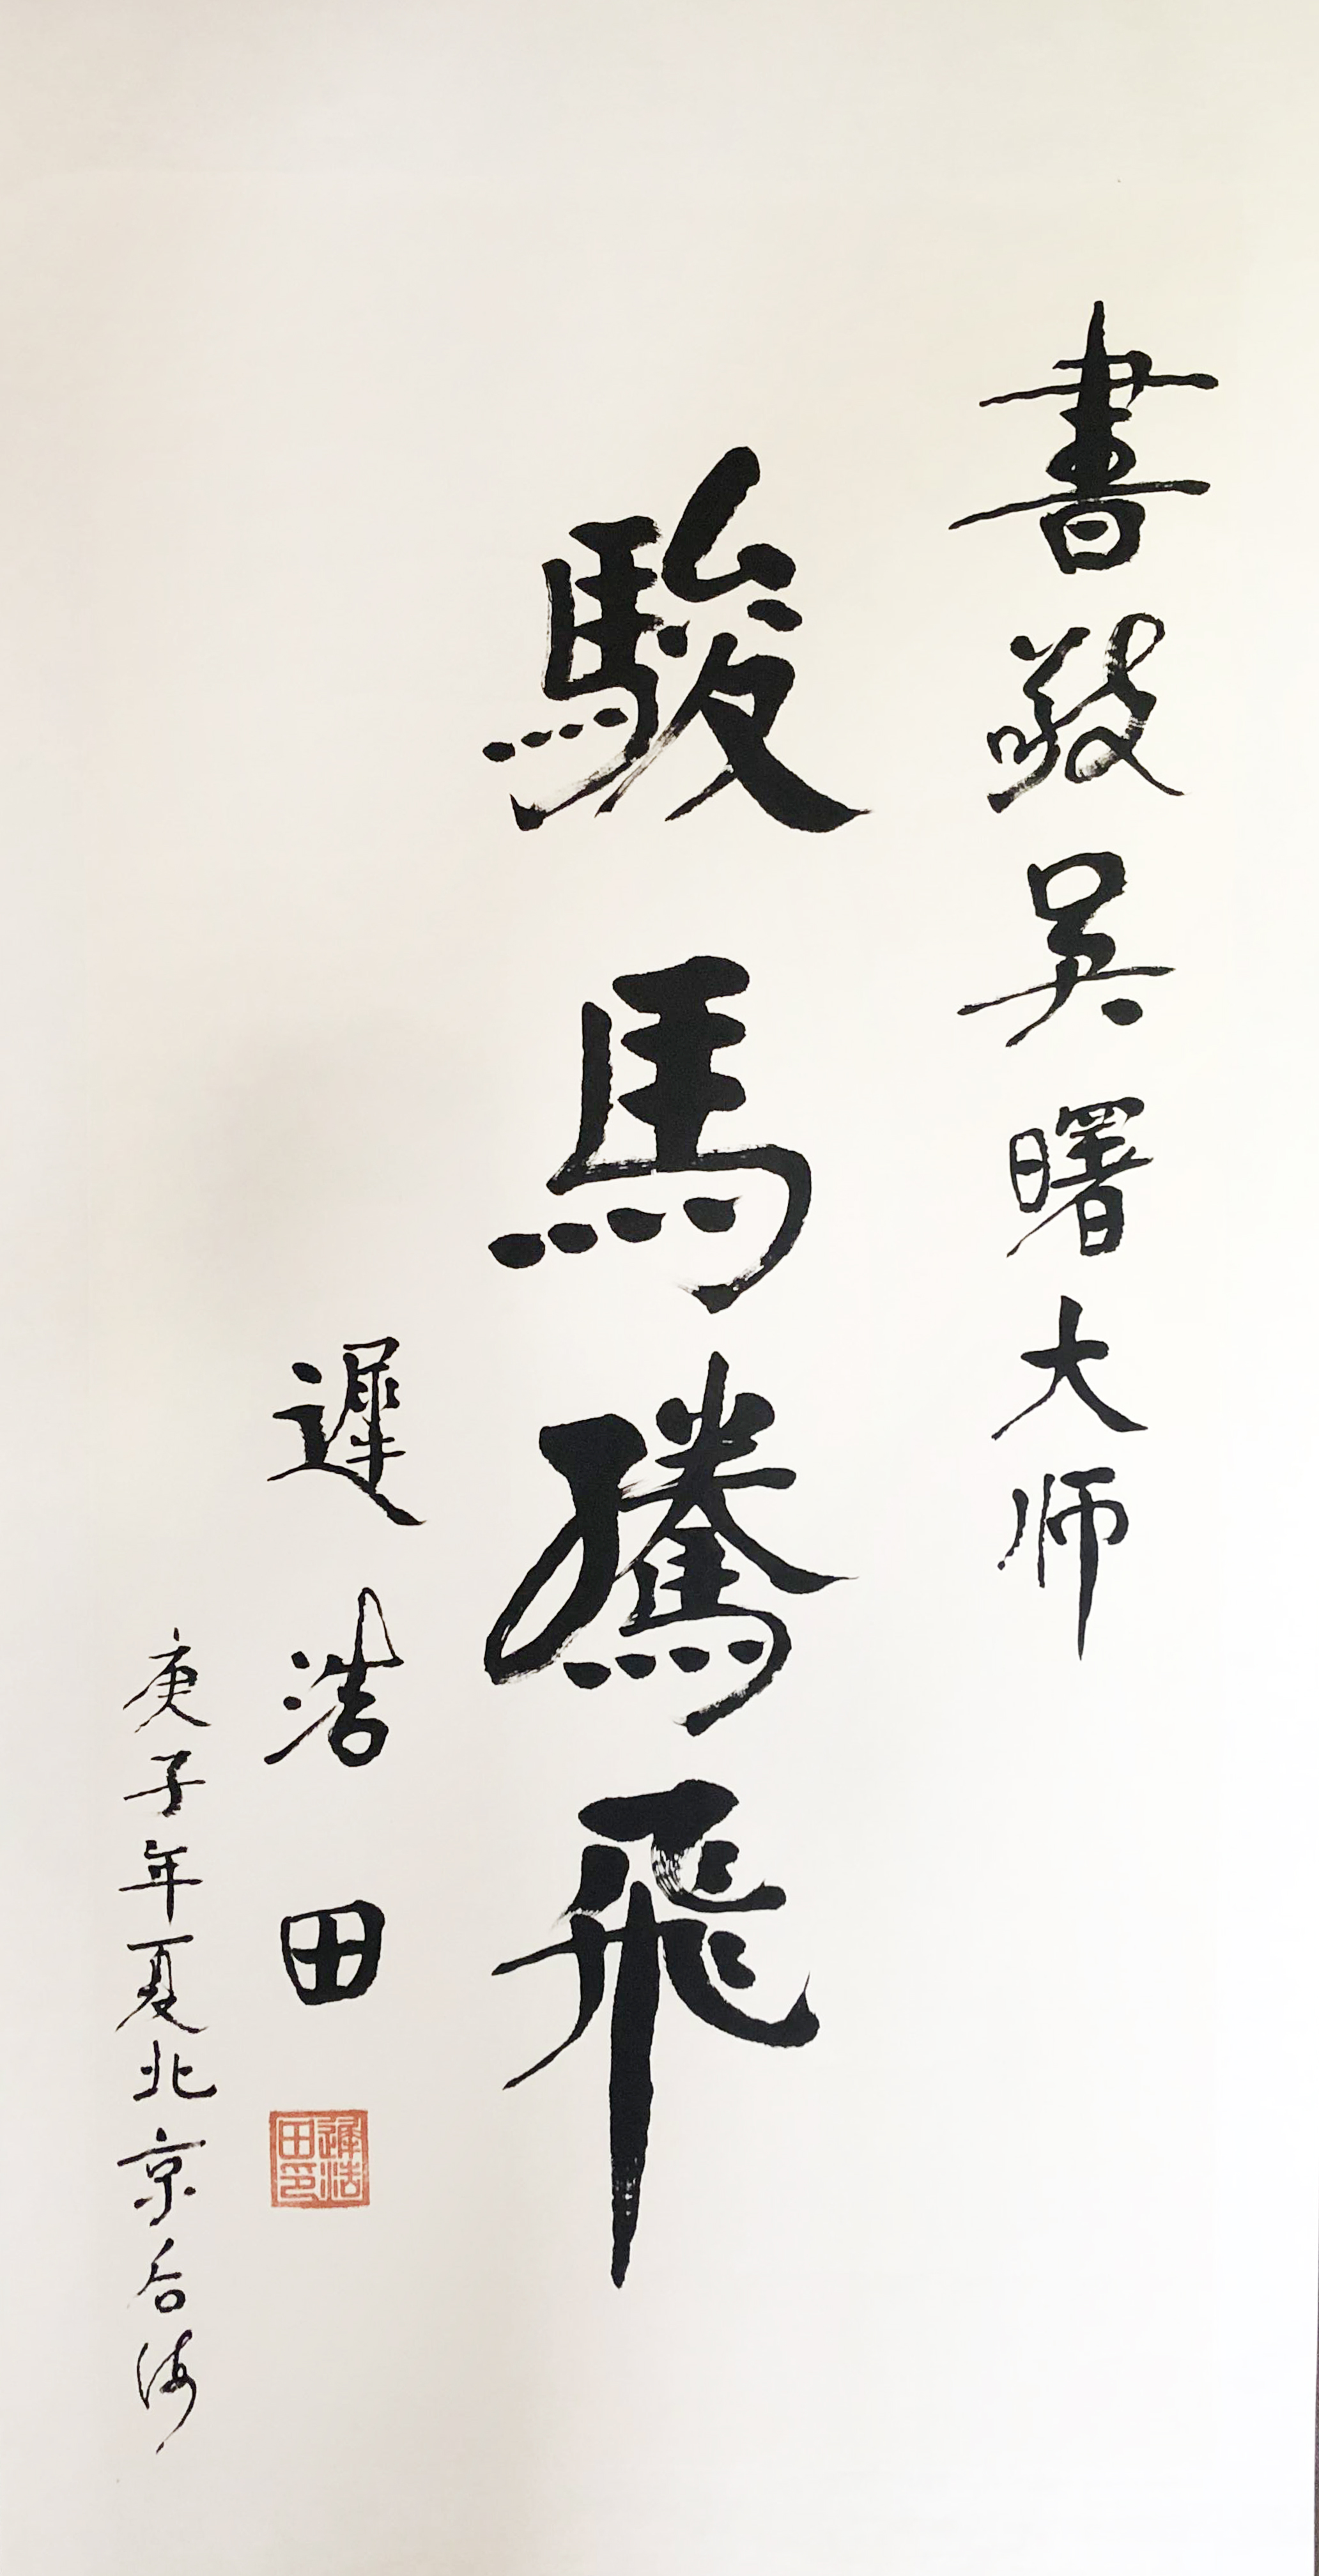 書敬吴曙大师
駿馬騰飛
遲浩田
庚子年夏北京后海
遲浩田印